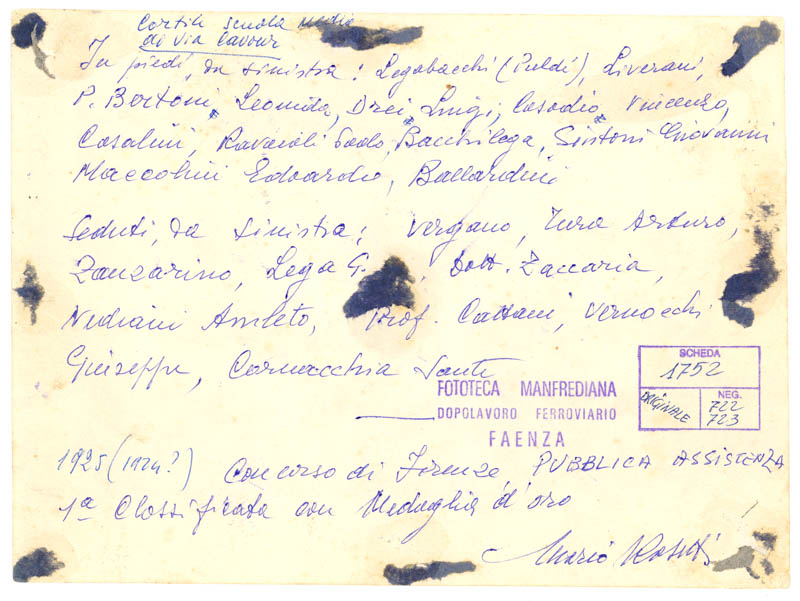 Cortile scuola Media
di Via Cavour
In piedi, da sinistra: Legabacchi (Puldí), Liverani,
P. Bertoni, Leonida, Drei Luigi, Casadio, Vincenzo,
Casalini, Ravaioli Paolo, Bacchilega, Sintoni Giovanni
Maccolini Edoardo, Ballardini
Seduti, da sinistra: Vergano, Tura Arturo,
Zanzarino, Lega G. , Dott. Zaccaria,
Nediani Amleto, Prof. Cattani, Vernocchi
Giuseppe, Cornacchia Sante
FOTOTECA MANFREDIANA
DOPOLAVORO FERROVIARIO
FAENZA
SCHEDA
1752
ORIGINALE
NEG.
722
723
1925 (1924?) Concorso di Firenze, PUBBLICA ASSISTENZA
1ª Classificata con Medaglia d'oro
Mario